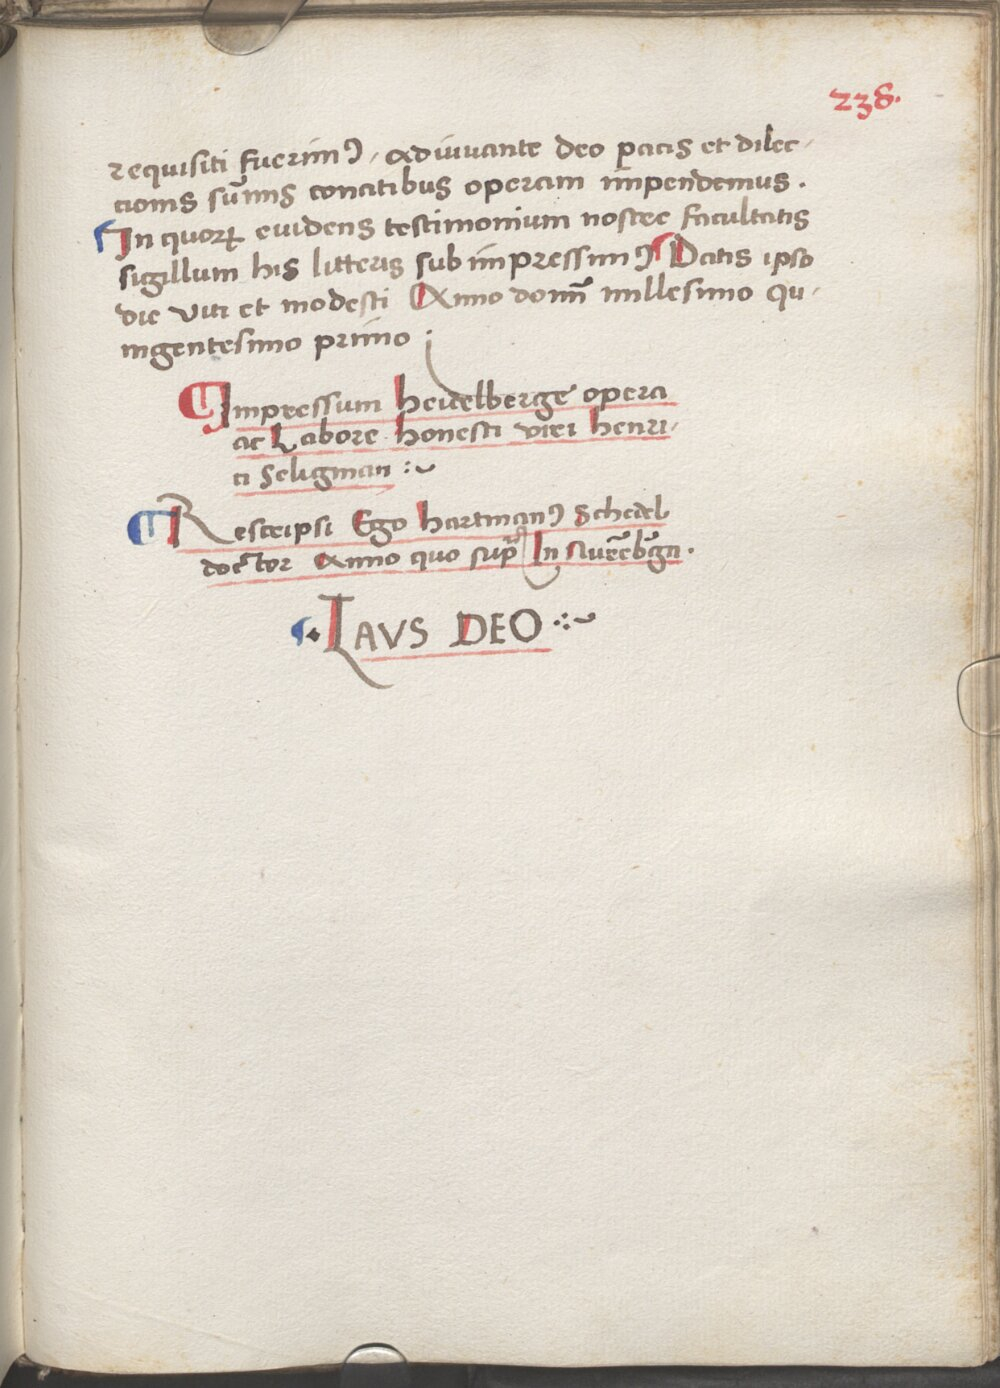 238.
requisiti fuerimꝰ, adiuuante deo pacis et dilec-
cionis sūmis conatibus operam impendemus.
In quorꝝ euidens testimonium nostre facultatis
sigillum his litteris sub impressimꝰ Datis ipso
die viti et modesti Anno domī millesimo qu-
ingentesimo primo :
Impressum heidelberge opera
ac Labore honesti viri henri-
ci Seligman :~
Rescripsi Ego hartmanꝰ Schedel
doctor Anno quo supᵃ In Nurēbūga.
LAVS DEO :~